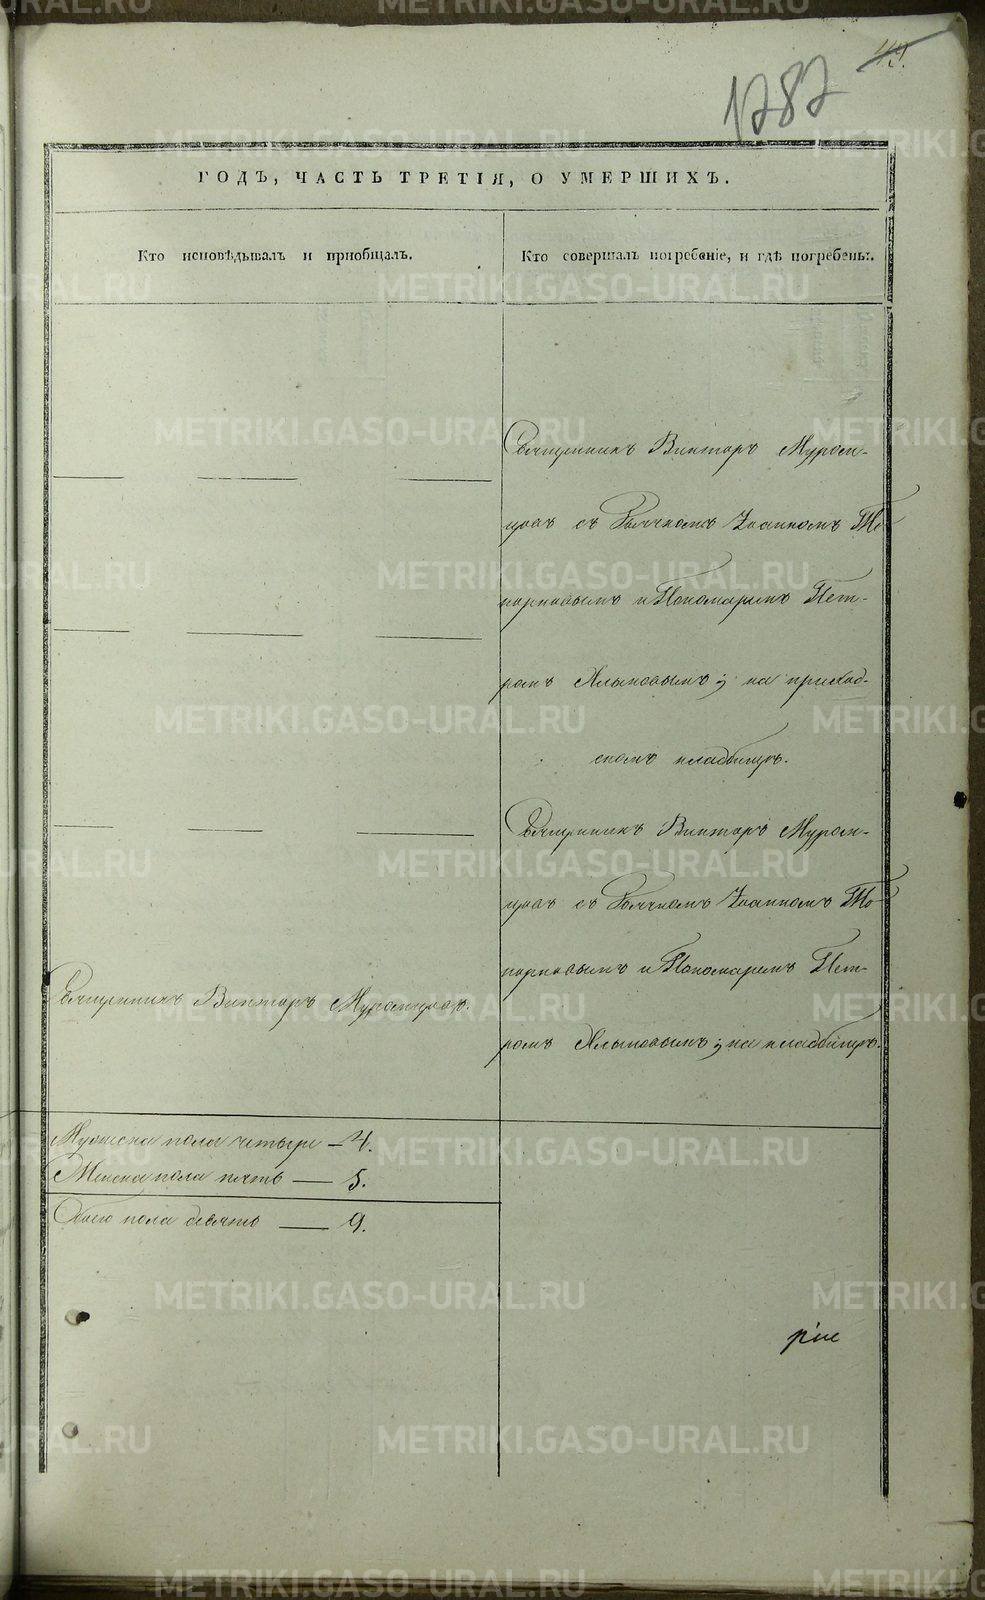 1787
ГОДЪ, ЧАСТЬ ТРЕТІЯ, О УМЕРШИХЪ.
Кто исповѣдывалъ и приобщалъ.
Кто совершалъ погребеніе, и гдѣ погребены:.
Священникъ Викторъ Муром-
цовъ съ Дьячкомъ Іоанномъ То
порковымъ и Пономаремъ Пет-
ромъ Ялымовымъ; на приход-
скомъ кладбищѣ.
Священникъ Викторъ Муром-
цовъ съ Дьячкомъ Іоанномъ То-
порковымъ и Пономаремъ Пет-
ромъ Ялымовымъ; на кладбищѣ.
Священникъ Викторъ Муромцовъ.
Мужеска пола четыре — 4.
Женска пола пять — 5.
Обоего пола девять — 9.
METRIKI.GASO-URAL.RU